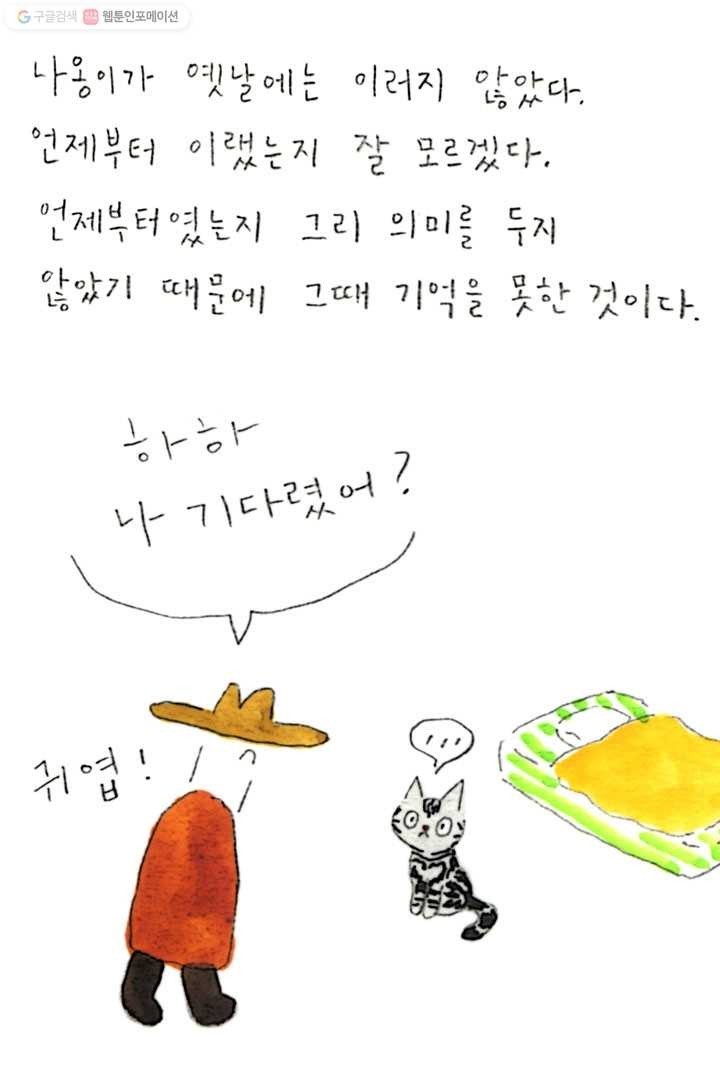 구글검색 웹툰인포메이션
나옹이가 옛날에는 이러지 않았다.
언제부터 이랬는지 잘 모르겠다.
언제부터였는지 그리 의미를 두지
않았기 때문에 그때 기억을 못한 것이다.
하하
나 기다렸어?
...
귀엽!